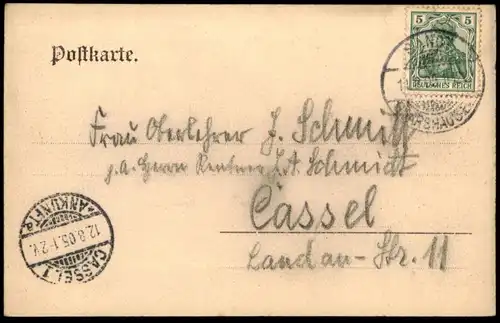 5 5
DEUTSCHES REICH
Postkarte.
Frau Oberlehrer J. Schmitt
p. a. Herrn Rentner J. A. Schmidt
Cassel
Landau-Str. 11
CASSEL 1
*ANKUNFT*
12.8.05.1-2V.